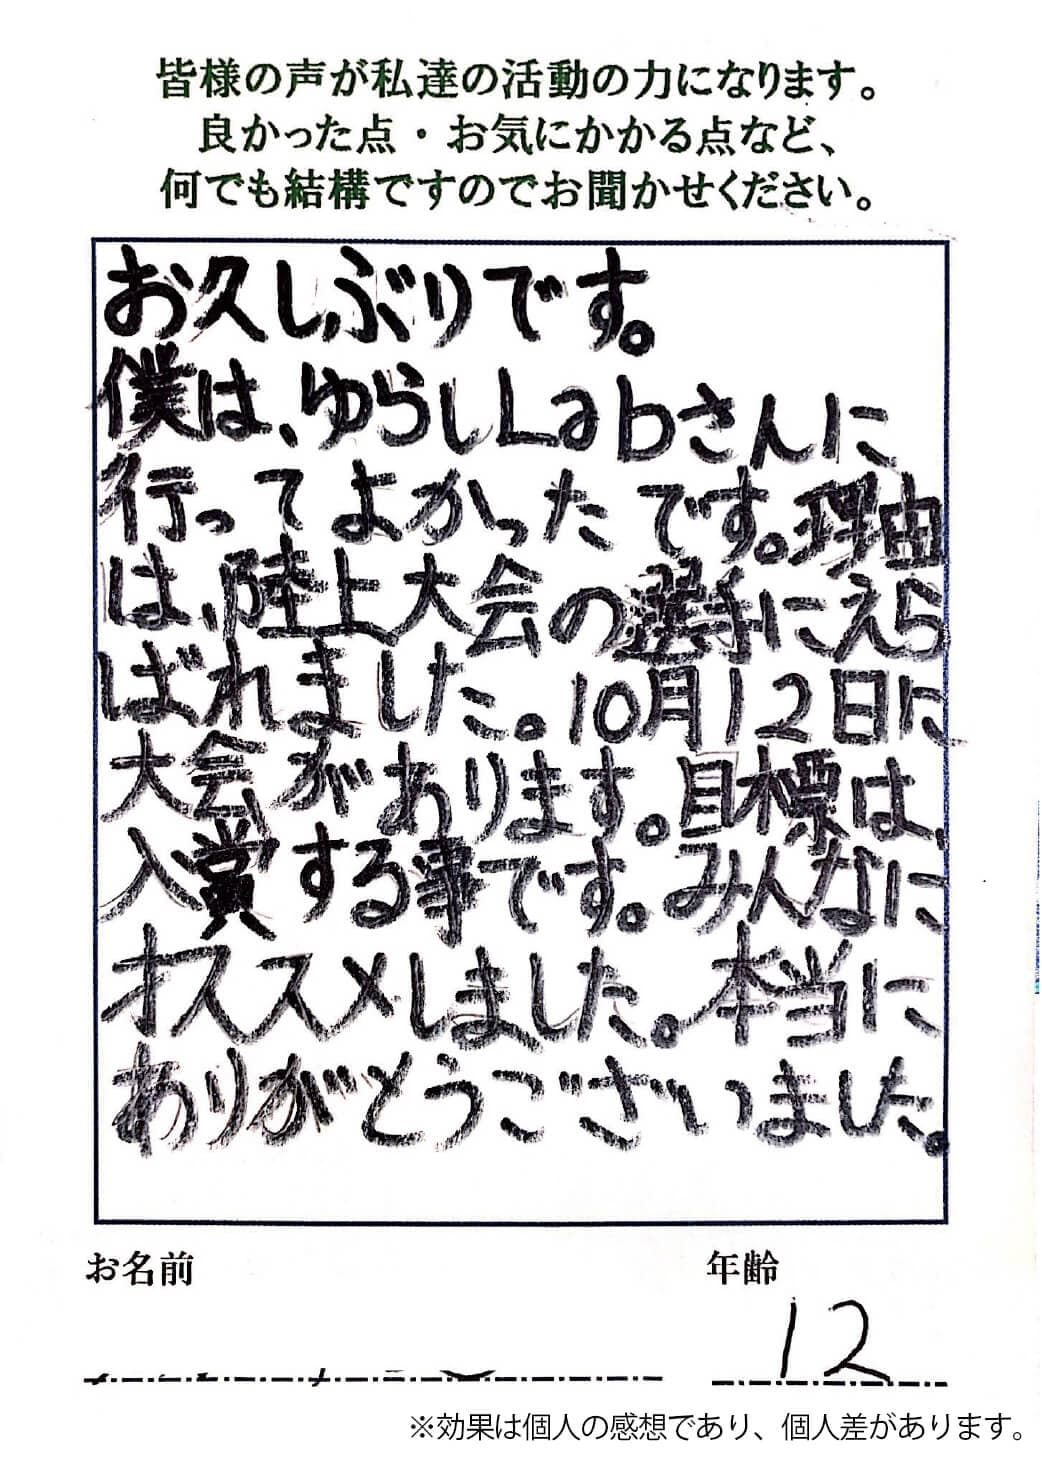 皆様の声が私達の活動の力になります。
良かった点・お気にかかる点など、
何でも結構ですのでお聞かせください。
お久しぶりです。
僕は、ゆらしLabさんに
行ってよかったです。理由
は、陸上大会の選手にえら
ばれました。10月12日に
大会があります。目標は、
入賞する事です。みんなに
オススメしました。本当に
ありがとうございました。
お名前
年齢
12
※効果は個人の感想であり、個人差があります。